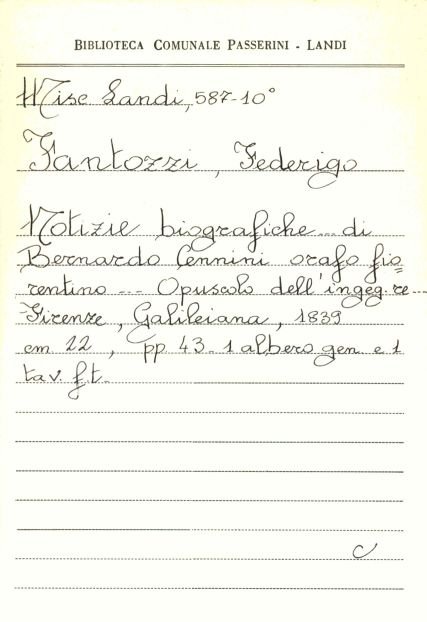 BIBLIOTECA COMUNALE PASSERINI - LANDI
Misc Landi, 587-10°
Fantozzi, Federigo
Notizie biografiche... di
Bernardo Cennini orafo fio=
rentino ... Opuscolo dell'ingeg.re...
Firenze, Galileiana, 1839
cm 22, pp 43. 1 albero gen. e 1
tav. f.t.
C